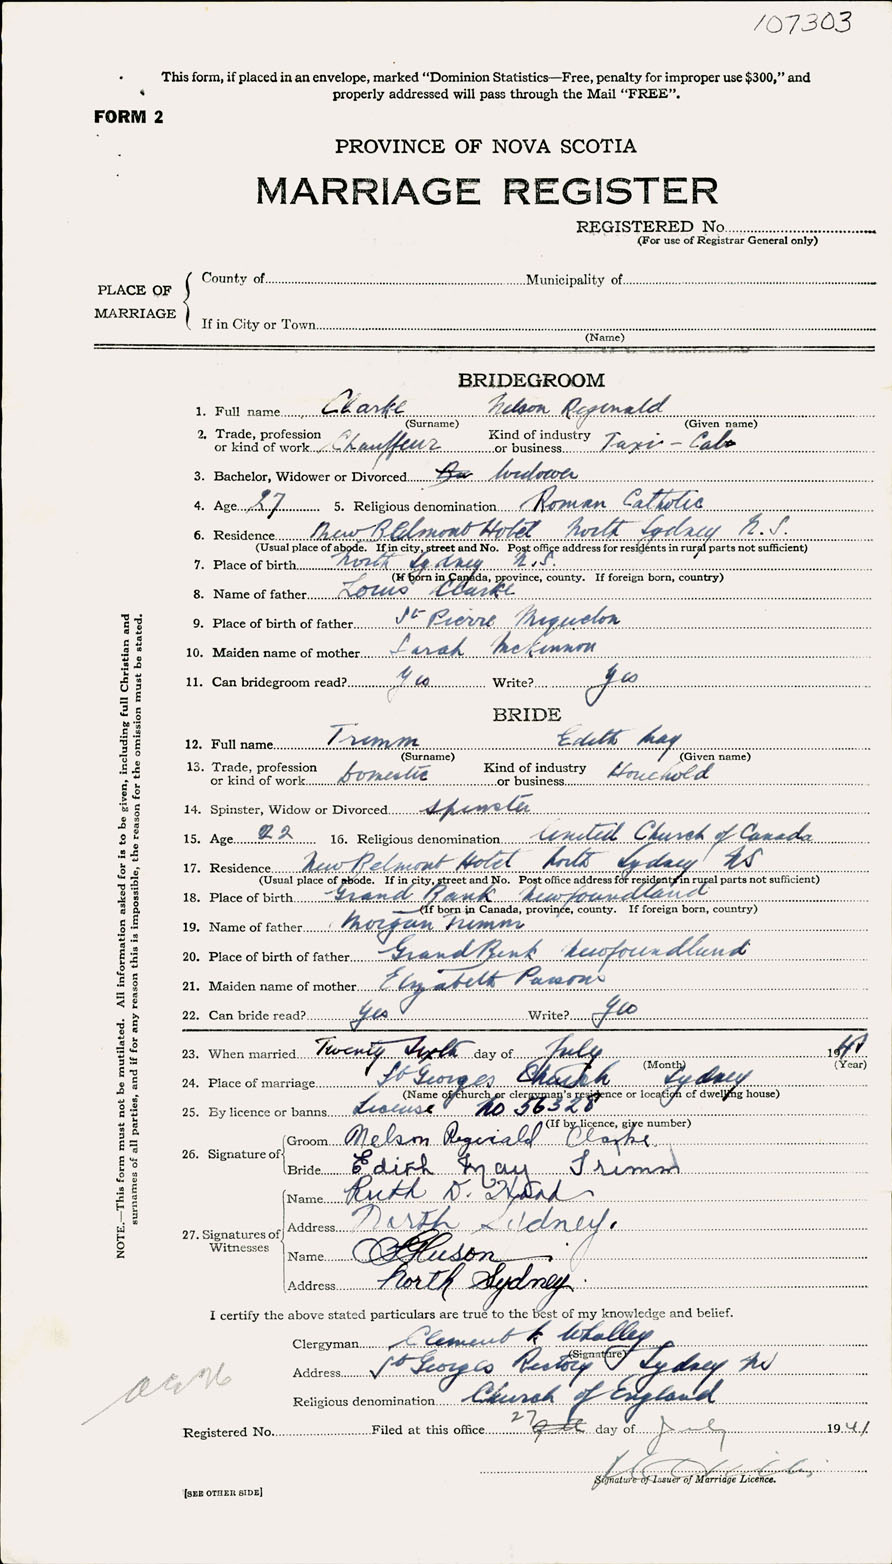 107303
This form, if placed in an envelope, marked “Dominion Statistics—Free, penalty for improper use $300,” and
properly addressed will pass through the Mail “FREE”.
FORM 2
PROVINCE OF NOVA SCOTIA
MARRIAGE REGISTER
REGISTERED No.
(For use of Registrar General only)
PLACE OF MARRIAGE
County of Municipality of
If in City or Town
(Name)
BRIDEGROOM
1. Full name Clarke Nelson Reginald
(Surname) (Given name)
2. Trade, profession or kind of work Chauffeur Kind of industry or business Taxi - Cab
3. Bachelor, Widower or Divorced Widower
4. Age 27 5. Religious denomination Roman Catholic
6. Residence New Belmont Hotel North Sydney N.S.
(Usual place of abode. If in city, street and No. Post office address for residents in rural parts not sufficient)
7. Place of birth North Sydney N.S.
(If born in Canada, province, county. If foreign born, country)
8. Name of father Louis Clarke
9. Place of birth of father St Pierre Miquelon
10. Maiden name of mother Sarah McKinnon
11. Can bridegroom read? Yes Write? Yes
BRIDE
12. Full name Trimm Edith May
(Surname) (Given name)
13. Trade, profession or kind of work Domestic Kind of industry or business Household
14. Spinster, Widow or Divorced Spinster
15. Age 22 16. Religious denomination United Church of Canada
17. Residence New Belmont Hotel North Sydney NS
(Usual place of abode. If in city, street and No. Post office address for residents in rural parts not sufficient)
18. Place of birth Grand Bank Newfoundland
(If born in Canada, province, county. If foreign born, country)
19. Name of father Morgan Trimm
20. Place of birth of father Grand Bank Newfoundland
21. Maiden name of mother Elizabeth Parsons
22. Can bride read? Yes Write? Yes
23. When married Twenty Sixth day of July 1941
(Month) (Year)
24. Place of marriage St Georges Church Sydney
(Name of church or clergyman's residence or location of dwelling house)
25. By licence or banns License No 56328
(If by licence, give number)
26. Signature of
Groom Nelson Reginald Clarke
Bride Edith May Trimm
27. Signatures of Witnesses
Name Ruth D.
Address North Sydney.
Name
Address North Sydney.
I certify the above stated particulars are true to the best of my knowledge and belief.
Clergyman Clement Whalley
(Signature)
Address St Georges Rectory Sydney NS
Religious denomination Church of England
Registered No. Filed at this office 27 day of July 1941
Signature of Issuer of Marriage Licence.
[SEE OTHER SIDE]
NOTE.—This form must not be mutilated. All information asked for is to be given, including full Christian and
surnames of all parties, and if for any reason this is impossible, the reason for the omission must be stated.